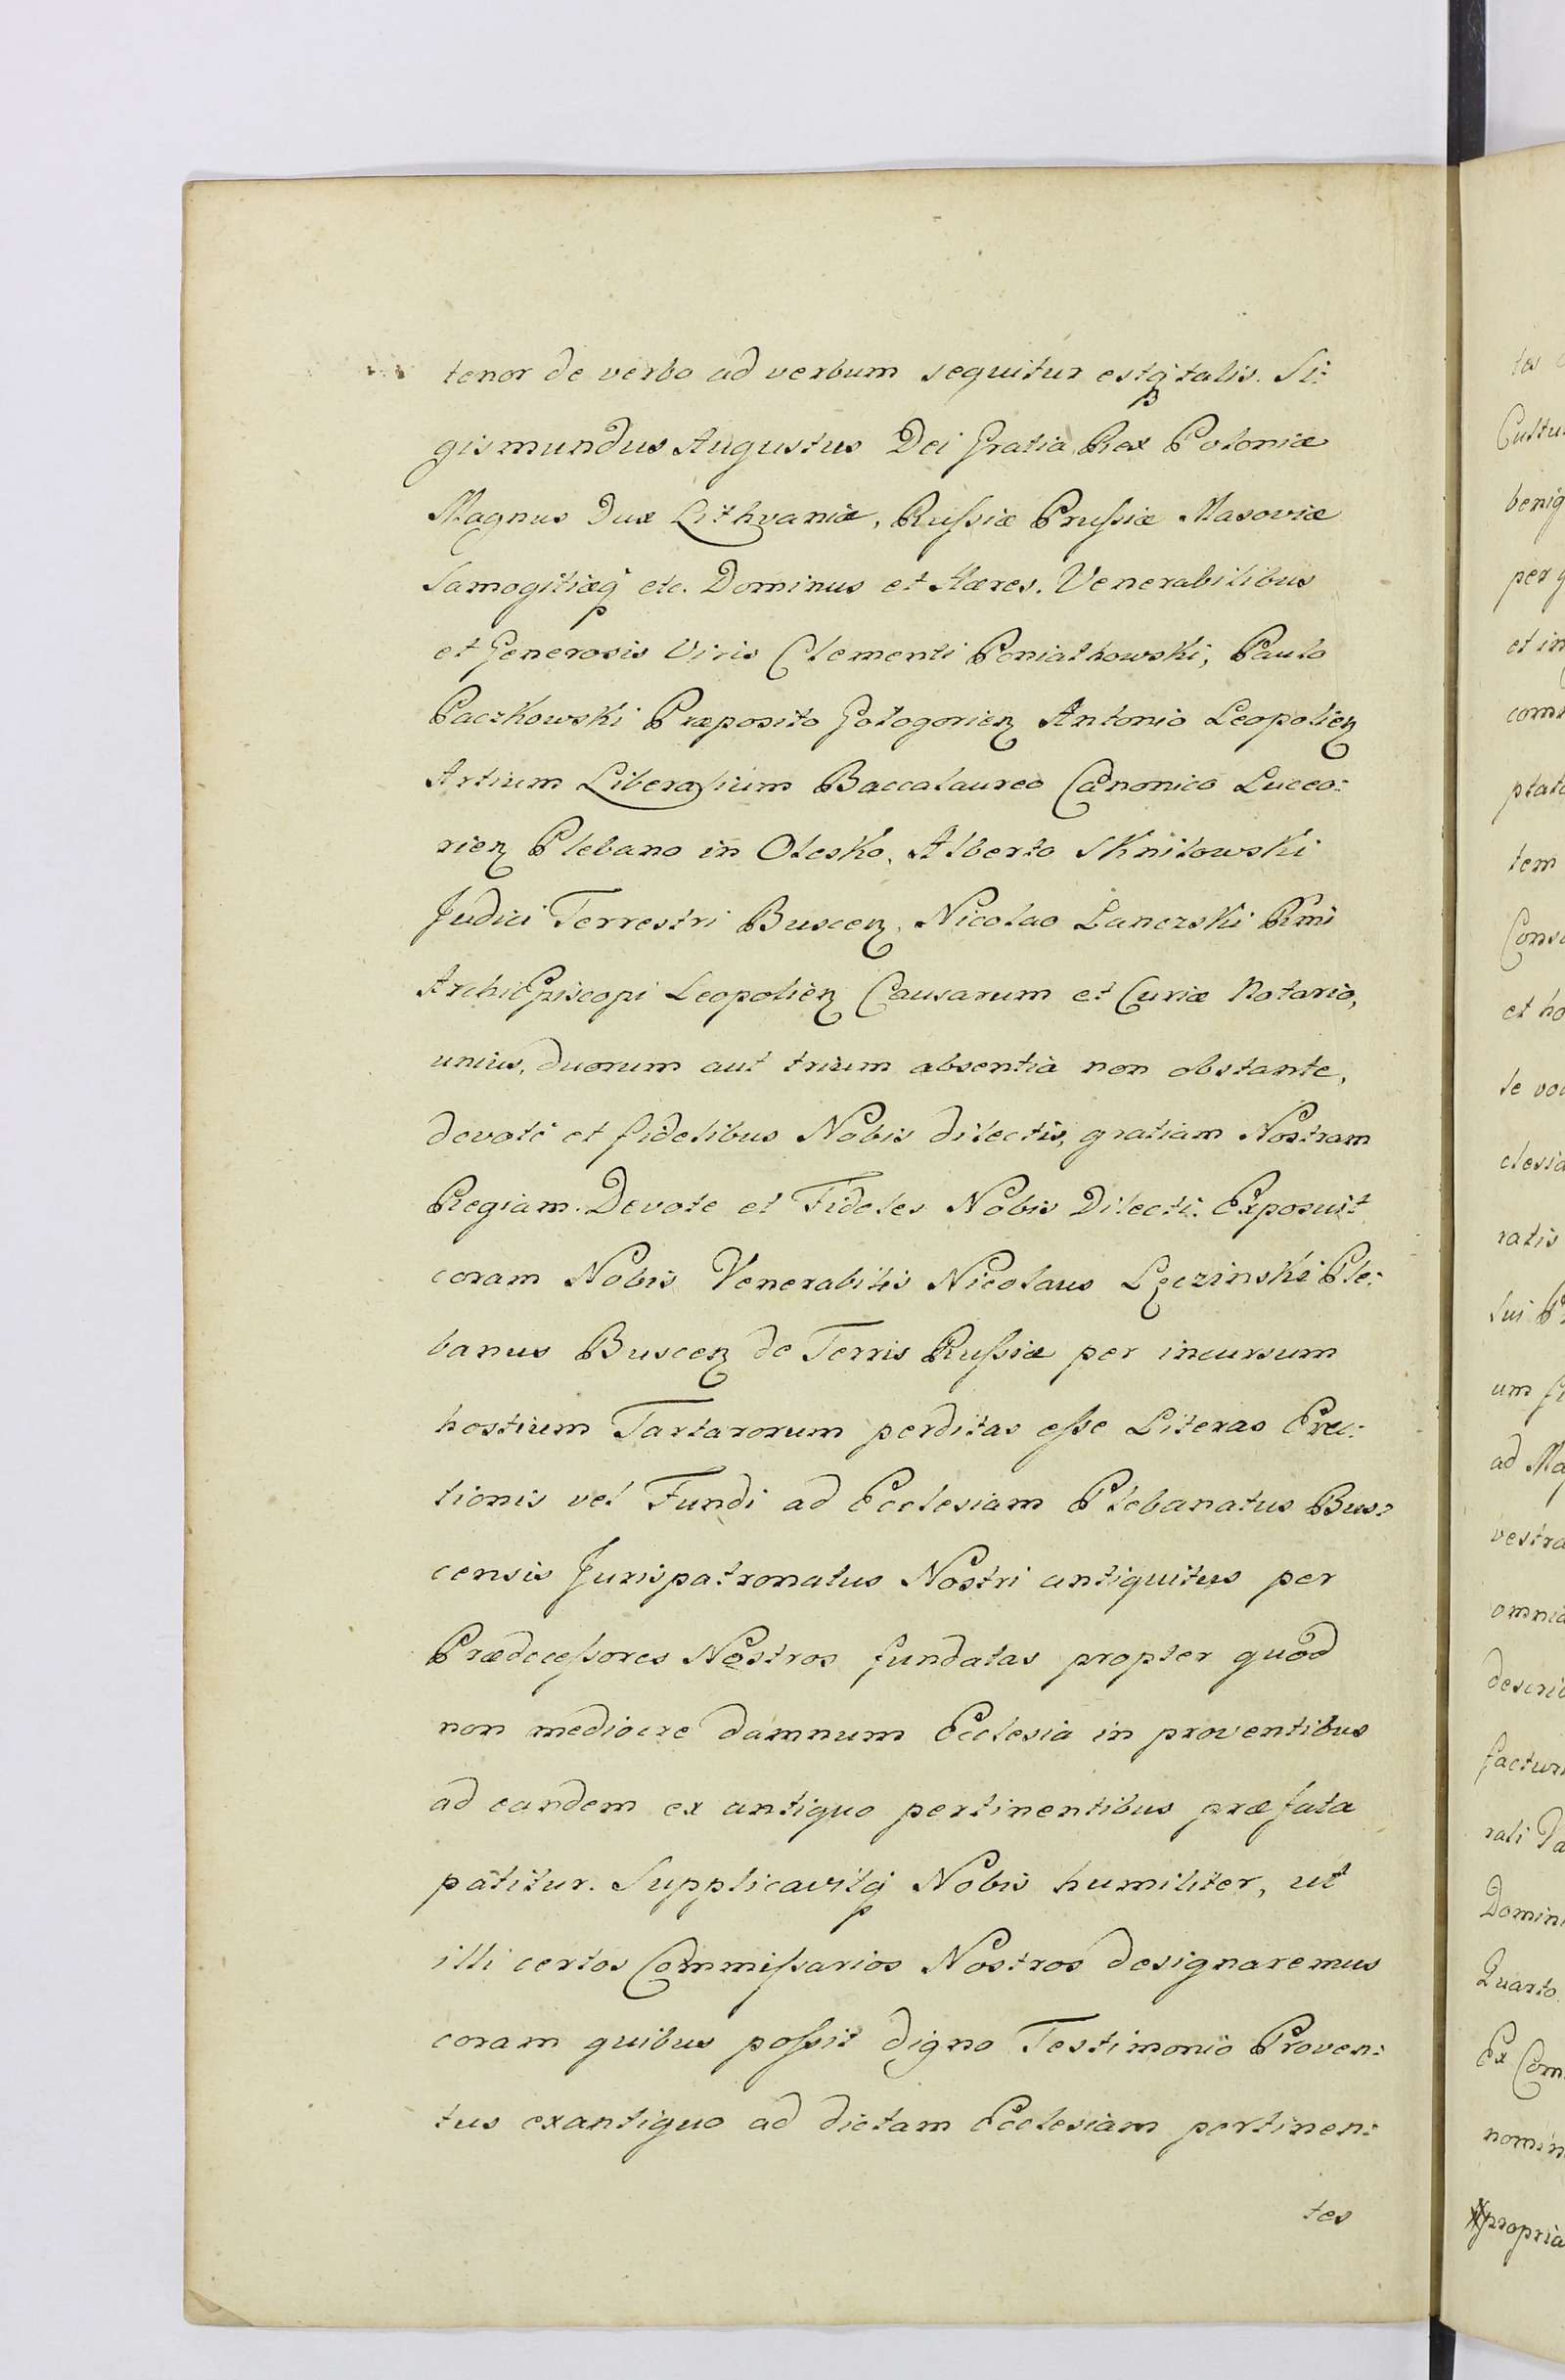 tenor de verbo ad verbum sequitur estq talis. Si:
gismundus Augustus Dei Gratia Rex Poloniæ
Magnus Dux Lithvaniæ, Rußiæ Prußiæ Masoviæ
Samogitiæq etc. Dominus et Hæres. Venerabilibus
et Generosis Viris Clementi Poniathowski, Paulo
Paczkowski Præposito Gologorien Antonio Leopolien
Artium Liberalium Baccalaureo Canonico Luceo:
rien Plebano in Olesko, Alberto Sknilowski
Judici Terrestri Buscen, Nicolao Lanczski Rmi
ArchiEpiscopi Leopolien Causarum et Curiæ Notario,
unius, duorum aut trium absentia non obstante,
devotè et fidelibus Nobis dilectis, gratiam Nostram
Regiam. Devote et Fideles Nobis Dilecti. Exposuit
coram Nobis Venerabilis Nicolaus Lęczinski Ple:
banus Buscen de Terris Rußiæ per incursum
hostium Tartarorum perditas eße Literas Erec:
tionis vel Fundi ad Ecclesiam Plebanatus Bus:
censis Jurispatronatus Nostri antiquitus per
Prædeceßores Nostros fundatas propter quod
non mediocre damnum Ecclesia in proventibus
ad eandem ex antiquo pertinentibus præfata
patitur. Supplicavitq Nobis humiliter, ut
illi certos Commißarios Nostros designaremus
coram quibus poßit digno Testimonio Proven:
tus exantiquo ad dictam Ecclesiam pertinen:
tes
Cultu
benig
per q
et in
ptat
tem
et ho
clesia
ratis
ad Ma
vestra
omnia
factur
Domin
Quarto
Ex Com
nomin
propria